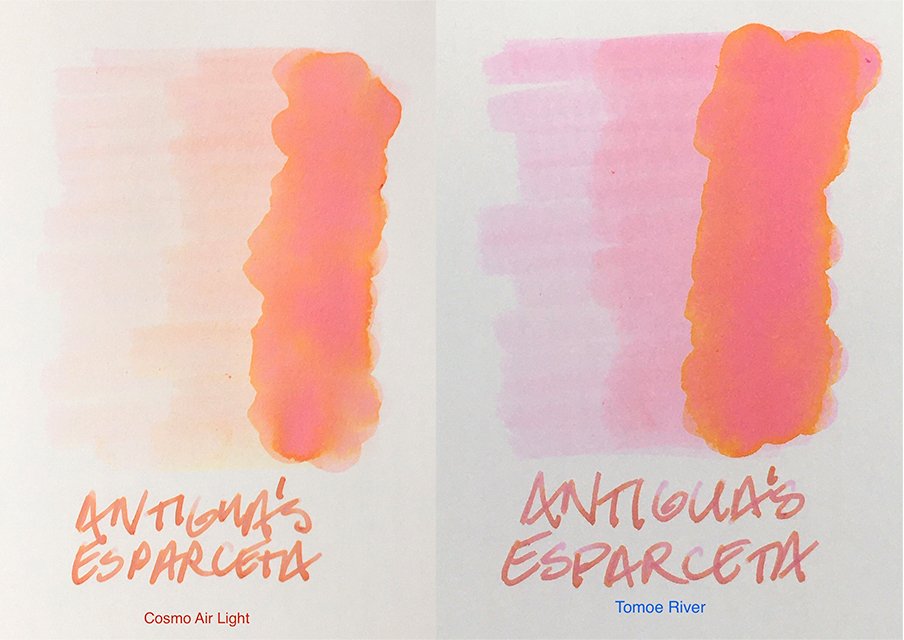 ANTIGUA'S
ESPARCETA
Cosmo Air Light
ANTIGUA'S
ESPARCETA
Tomoe River